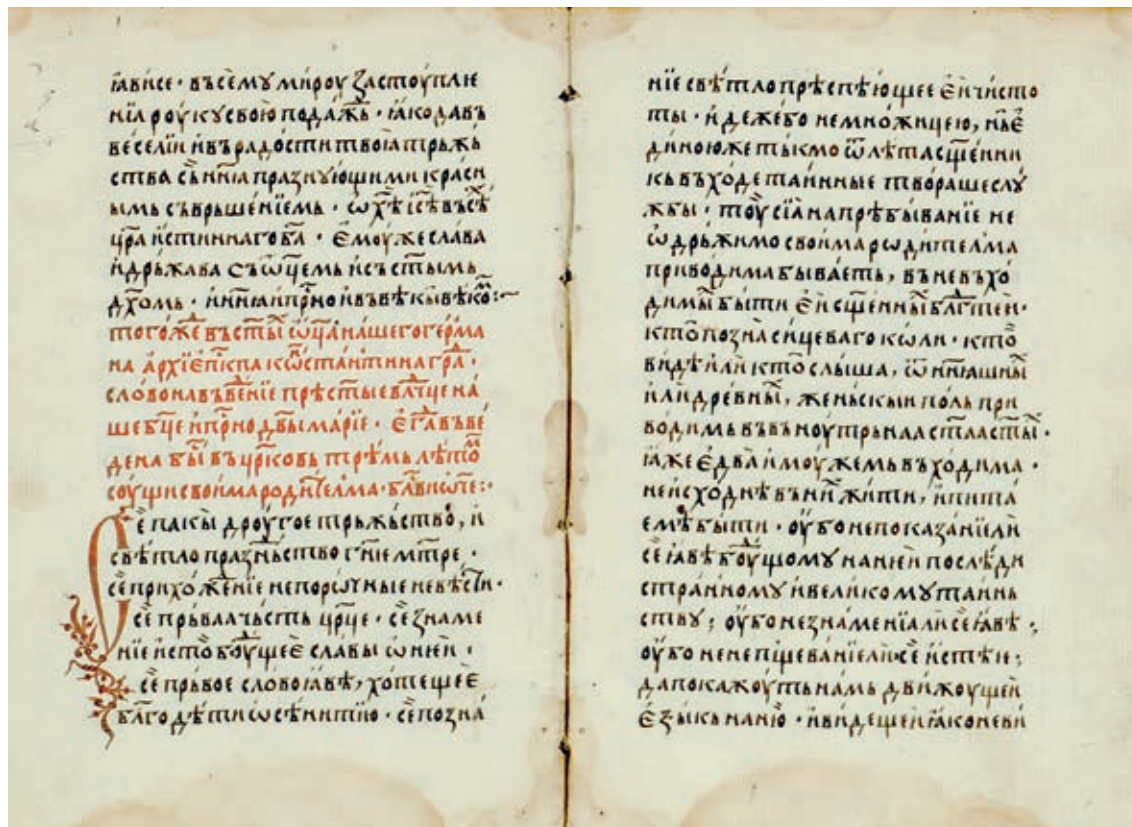 ꙗвисе · въсемꙋ мироу застоупле
нїа роукꙋ свою подажⷣь · ꙗко давъ
веселїи и въ радости твоꙗ трьжь
ства съ нн҃ꙗ празнꙋющими красн
ымь съврьшенїемь · ѡ хⷭ҇ѣ і҆с҃ѣ въсⷯѣ
цр҃а истиннаго б҃а · е҆моуже слава
и дрьжава съ ѡц҃емь и съ ст҃ымь
дх҃омь · и нн҃ꙗ и прⷭ҇но и въ вѣкы вѣкоⷨ:~
тогоⷤже въ ст҃ыⷯ ѡц҃а нашего герма
на архїепⷭ҇кпа кѡⷩстантїна граⷣ ·
слово на въвⷣенїе прѣст҃ые влⷣце на
ше бц҃е и прⷭ҇но дв҃ы марїе · е҆гⷣа въве
дена быⷭ въ цр҃ковь трѣмь лѣтоⷨ
соущи своима родитⷧелма · бл҃ви ѿче:·
Се пакы дроугое трьжьство, и
свѣтло празⷣньство г҃нїе мт҃ре ·
се прихоⷤженїе непорѡчные невѣсⷭти ·
се прьваа чьсть цр҃це · се знаме
нїе исто бⷣоущее славы ѡ ней ·
се прьвое слово ꙗвѣ, хотещее
бл҃годѣти ѡсѣнитїю · се позна
нїе свѣтло прѣспѣющее е҆и чисто
ты · идеже бо не множицею, нь е҆
диною же тькмо ѿ лѣта сщ҃енни
кь въходе таинные твораше слꙋ
жбы · тоⷹ сїа на прѣбыванїе не
ѡдрьжимо своима родителма
приводима бываеть, въ невъхо
димыⷯ быти е҆и сщ҃енныⷯ блⷣгтей ·
ктоⷪ позна сицеваго кѡли · ктоⷪ
видѣ или ктоⷪ слыша, ѿ нн҃ꙗшныⷯ
или древныⷯ, женьскыи поль при
водимь въ вьноутрьнꙗа ст҃аа ст҃ыⷯ ·
ꙗже едва и моужемь въходима ·
неисходнѣ въ ниⷯ жити, и пита
емѣ быти · оубо не показанїе ли
се ꙗвѣ бⷣоущомꙋ на ней послѣди
странномꙋ и великомꙋ таинь
ствꙋ; оубо не знаменїа ли се ꙗвѣ ;
оубо не непщеванїе ли се истѣе ;
да покажоуть намь движоущеи
е҆зыкь на ню · и видещеи ꙗко неви